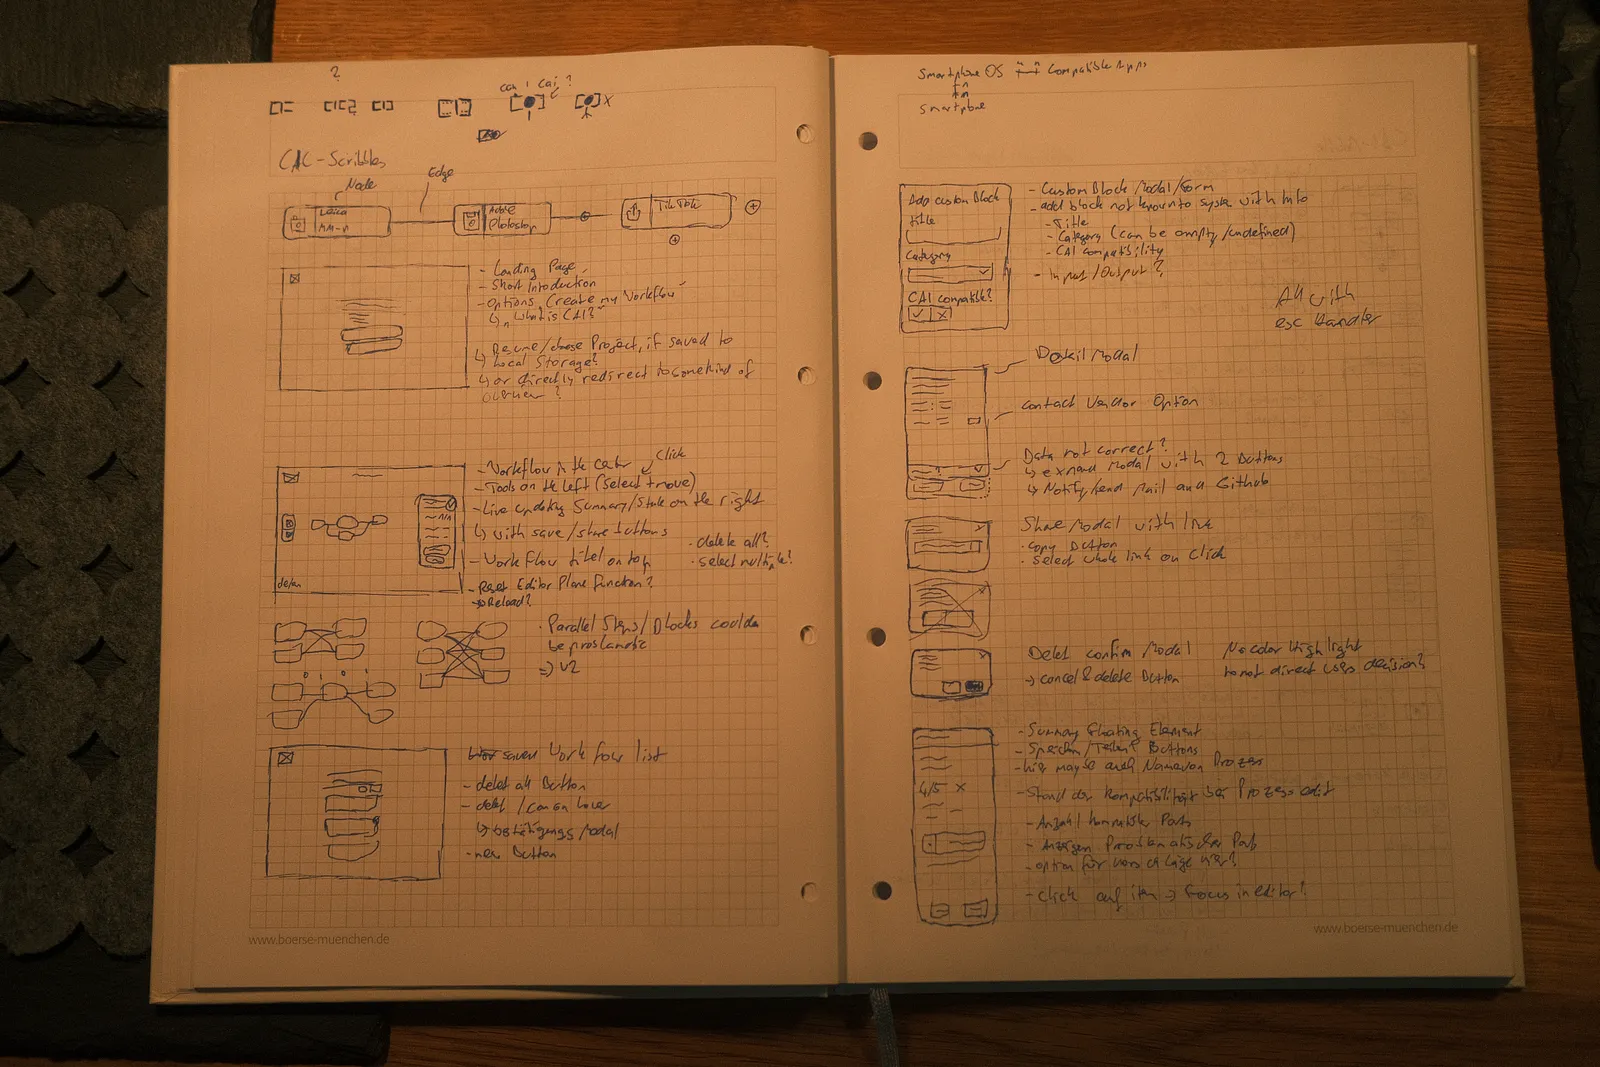 ?
can i cai?
CAC-Scribbles
Node
Edge
Leica
Adobe
Photoshop
TikTok
- Landing Page
- Short Introduction
- Options "Create my Workflow"
↳ "What is CAI?"
↳ Resume/choose Project, if saved to
Local Storage?
↳ or directly redirect to some kind of
overview?
- Workflow in the center
Click
- Tools on the left (Select + move)
- Live updating Summary/State on the right
↳ with save/share buttons
- Workflow titel on top
· delete all?
· select multiple?
- Reset Editor Plane function?
→ Reload?
· Parallel Steps/Blocks
be
=> V2
saved Workflow list
- delet all Button
- delet / on hover
↳ bestätigungs Modal
- new Button
www.boerse-muenchen.de
Smartphone OS Compatible Apps
Smartphone
Add custom Block
title
Category
CAI compatible?
- Custom Block Modal/Form
- add block not known to system with Info
- Title
- Category (can be empty/undefined)
- CAI compatibility
- Input/Output?
All with
esc Handler
Detail Modal
contact Vendor Option
Data not correct?
↳ expand Modal with 2 Buttons
↳ Notify/send Mail and Github
Share Modal with link
· copy Button
· Select whole link on click
Delet confirm Modal
→ cancel & delete Button
No color Highlight
to not direct users decision?
- Summary Floating Element
- Speichern/Teilen Buttons
- hier maybe auch Name von Prozess
4/5 X
- Stand der Kompatibilität bei Prozess edit
- Anzahl kompatibler Parts
- Anzeigen Problematischer Parts
- option für vorschläge hier?
- Click auf item → Focus in editor!
www.boerse-muenchen.de